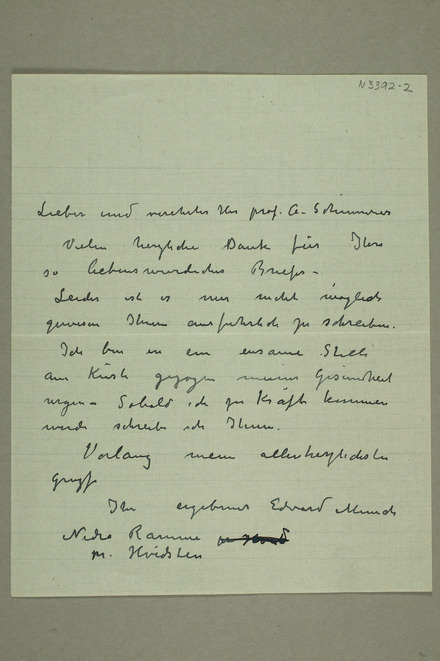 N 3392-2
Lieber und verehrter Herr prof. A. Schinnerer
Vielen herzliche Dank für Ihre
so liebenswürdiches Briefes –
Leider ist es mir nicht möglich
gewesen Ihnen ausfuhrlich zu schreiben.
Ich bin in ein einsame Stelle
am Küste gezogen meiner Gesundheit
wegen – Sobald ich zu Kräfte kommen
werde schreibe ich Ihnen.
Vorlaug mein allerherzlichsten
Gruss
Ihr ergebener Edvard Munch
Nedre Ramme
pr. Hvidsten